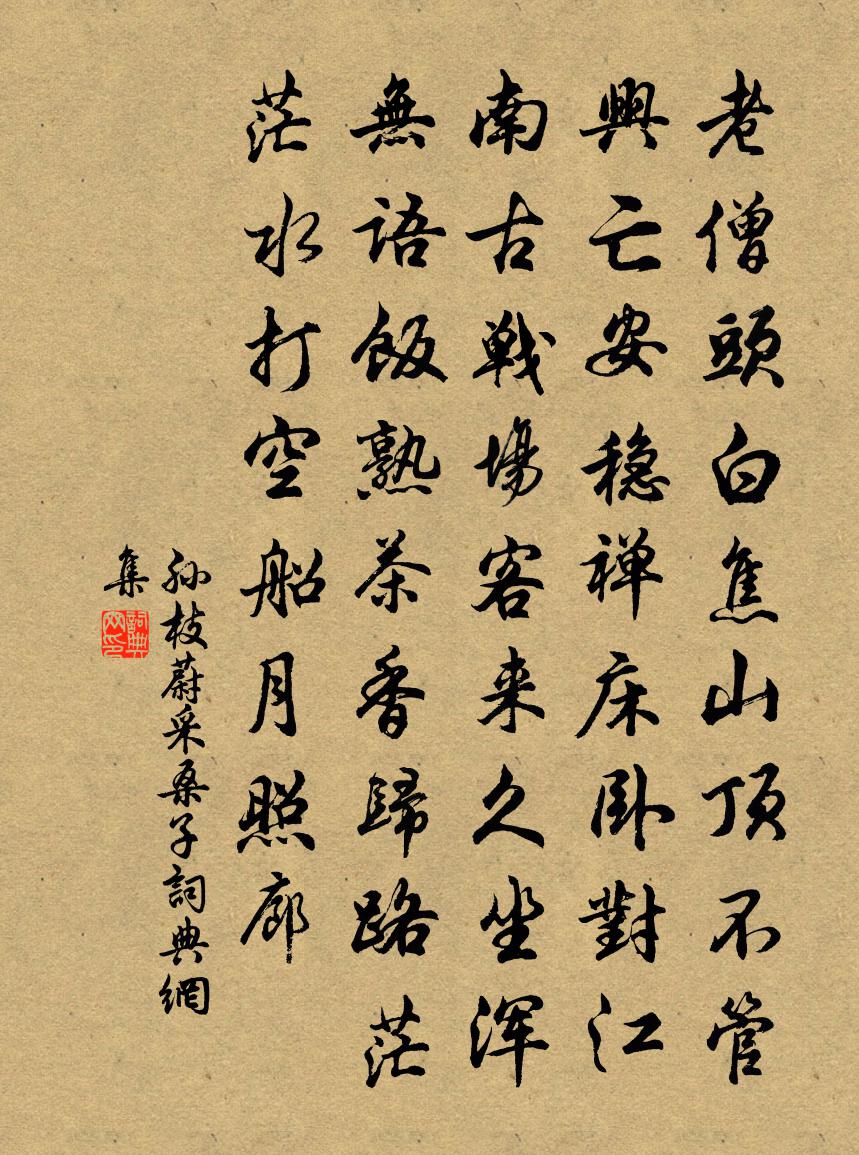 老僧頭白焦山頂不管
興亡安稳禅床卧對江
南古戦場客来久坐浑
無語飯熟茶香歸路茫
茫水打空船月照廊
孙枝蔚采桑子詞典網
集
詞典
网印